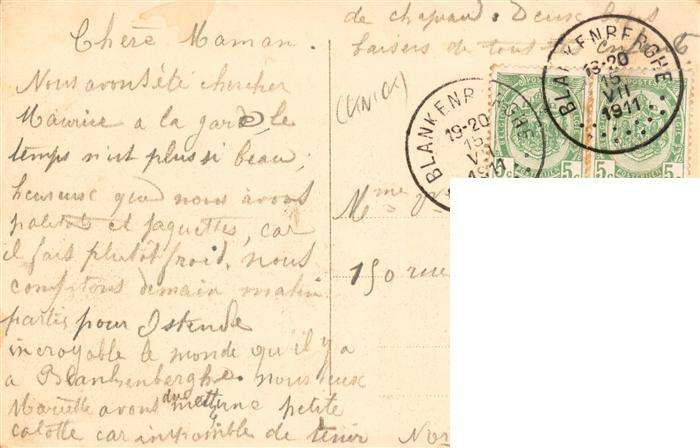 Chère Maman.
Nous avons été chercher
Maurice a la gare, le
temps n'est plus si beau;
heureuse que nous avons
paletots et jaquettes, car
il fais plutôt froid, nous
comptons demain matin
partir pour Ostende
incroyable le monde qu'il y a
a Blankenberghe. nous deux
Mariette avons dus mettre une petite
calotte car impossible de tenir
de chapeau. Deux bons
baisers de tous
(KNICK)
BLANKENBERGHE
19-20
15
VII
1911
BLANKENBERGHE
19-20
15
VII
1911
POSTES
5c
5c
5c
Mme
150 rue